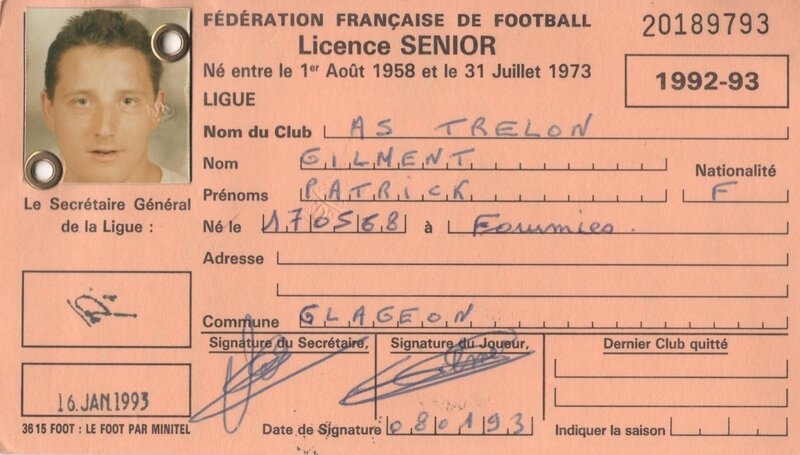 FÉDÉRATION FRANÇAISE DE FOOTBALL
20189793
Licence SENIOR
Né entre le 1er Août 1958 et le 31 Juillet 1973
1992-93
LIGUE
Nom du Club AS TRELON
Nom GILMENT
Nationalité
Prénoms PATRICK
F
Le Secrétaire Général
de la Ligue :
Né le 170568 à Fourmies.
Adresse
Commune GLAGEON
Signature du Secrétaire,
Signature du Joueur,
Dernier Club quitté
16 JAN. 1993
3615 FOOT : LE FOOT PAR MINITEL
Date de Signature 080193
Indiquer la saison